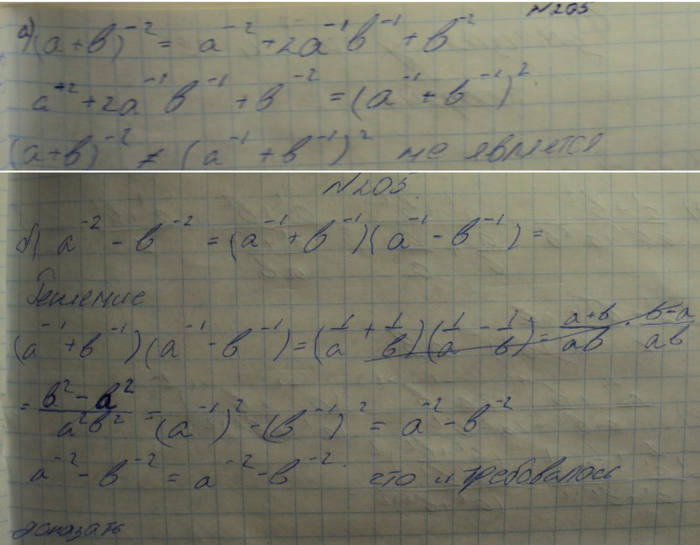 №205
а) (a+b)⁻² = a⁻² + 2a⁻¹b⁻¹ + b⁻²
a⁺² + 2a⁻¹b⁻¹ + b⁻² = (a⁻¹ + b⁻¹)²
(a+b)⁻² ≠ (a⁻¹ + b⁻¹)² не является
№205.
б) a⁻² - b⁻² = (a⁻¹ + b⁻¹)(a⁻¹ - b⁻¹) =
Решение
(a⁻¹ + b⁻¹)(a⁻¹ - b⁻¹) = (1/a + 1/b)(1/a - 1/b) = (a+b)/(ab) · (b-a)/(ab)
= (b² - a²)/(a²b²) = (a⁻¹)² - (b⁻¹)² = a⁻² - b⁻²
a⁻² - b⁻² = a⁻² - b⁻². что и требовалось
доказать